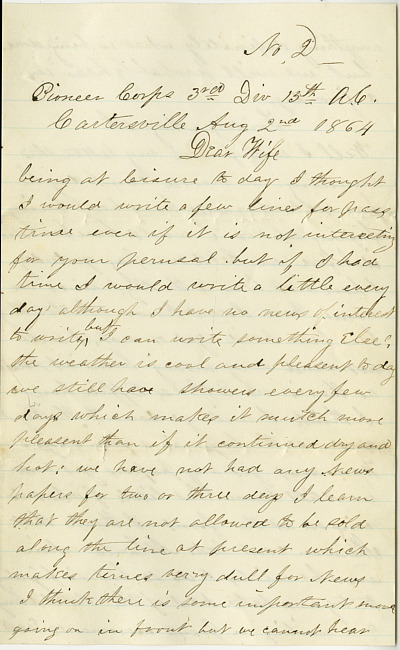 No. 2
Pioneer Corps 3rd Div 15th A.C.
Cartersville Aug 2nd 1864
Dear Wife
being at leisure to day I thought
I would write a few lines for pass
time even if it is not interesting
for your perusal. but if I had
time I would write a little every
day although I have no news of interest
to write, but I can write something Else;
the weather is cool and pleasent to day
we still have showers every few
days which makes it mutch more
pleasent than if it continued dry and
hot; we have not had any News
papers for two or three days I learn
that they are not allowed to be sold
along the line at present which
makes times verry dull for News
I think there is some important move
going on in front but we cannot hear